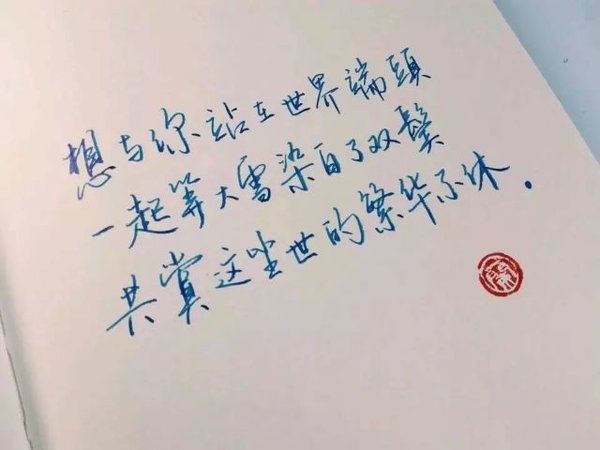 想与你站在世界端頭
一起等大雪染白了双鬓
共赏这尘世的繁华不休.